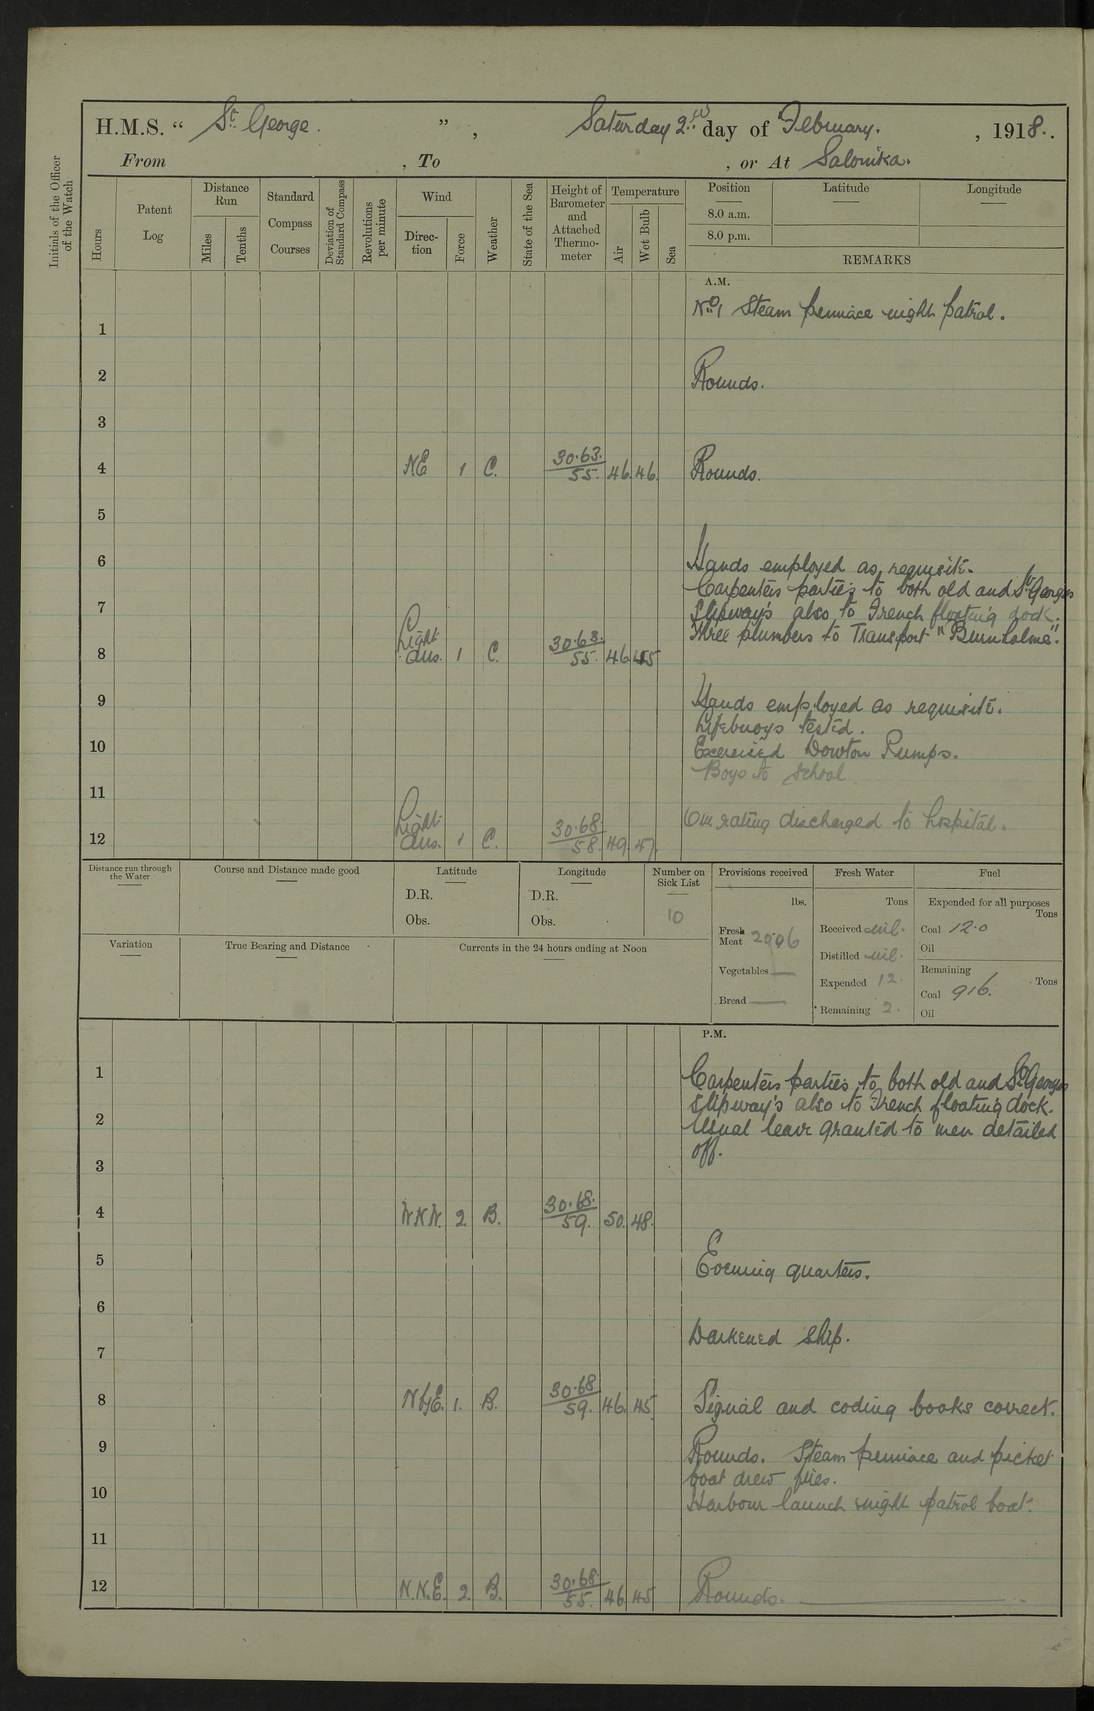 H.M.S. “ St. George. ” , Saturday 2nd day of February. , 1918.
From , To , or At Salonika.
Initials of the Officer of the Watch
Hours
Patent Log
Distance Run
Miles
Tenths
Standard Compass Courses
Deviation of Standard Compass
Revolutions per minute
Wind
Direction
Force
Weather
State of the Sea
Height of Barometer and Attached Thermometer
Temperature
Air
Wet Bulb
Sea
Position Latitude Longitude
8.0 a.m.
8.0 p.m.
REMARKS
A.M.
No. 1 Steam pinnace night patrol.
1
2 Rounds.
3
4 NE 1 C. 30.63. 55. 46. 46. Rounds.
5
6 Hands employed as requisite.
Carpenters parties to both old and St. Georges
7 Slipway's also to French floating dock.
Three plumbers to Transport
8 Light airs. 1 C. 30.68. 55. 46. 45
9 Hands employed as requisite.
Lifebuoys tested.
10 Exercised Downton Pumps.
Boys to School
11
One rating discharged to hospital.
12 Light airs. 1 C. 30.68. 58. 49. 47.
Distance run through the Water
Course and Distance made good
Latitude
D.R.
Obs.
Longitude
D.R.
Obs.
Number on Sick List
10
Provisions received
lbs.
Fresh Meat
Vegetables —
Bread —
Fresh Water
Tons
Received nil.
Distilled nil.
Expended 12.
Remaining 2.
Fuel
Expended for all purposes
Tons
Coal 12.0
Oil
Remaining
Tons
Coal 916.
Oil
Variation
True Bearing and Distance
Currents in the 24 hours ending at Noon
P.M.
1 Carpenters parties to both old and St. Georges
Slipway's also to French floating dock.
2 Usual leave granted to men detailed
off.
3
4 W.N.W. 2 B. 30.68. 59. 50. 48.
5 Evening quarters.
6
Darkened ship.
7
8 N by E. 1. B. 30.68 59. 46. 45. Signal and coding books correct.
9 Rounds. Steam pinnace and picket
boat drew fires.
10 Harbour launch night patrol boat.
11
12 N.N.E. 2. B. 30.68 55. 46. 45 Rounds.